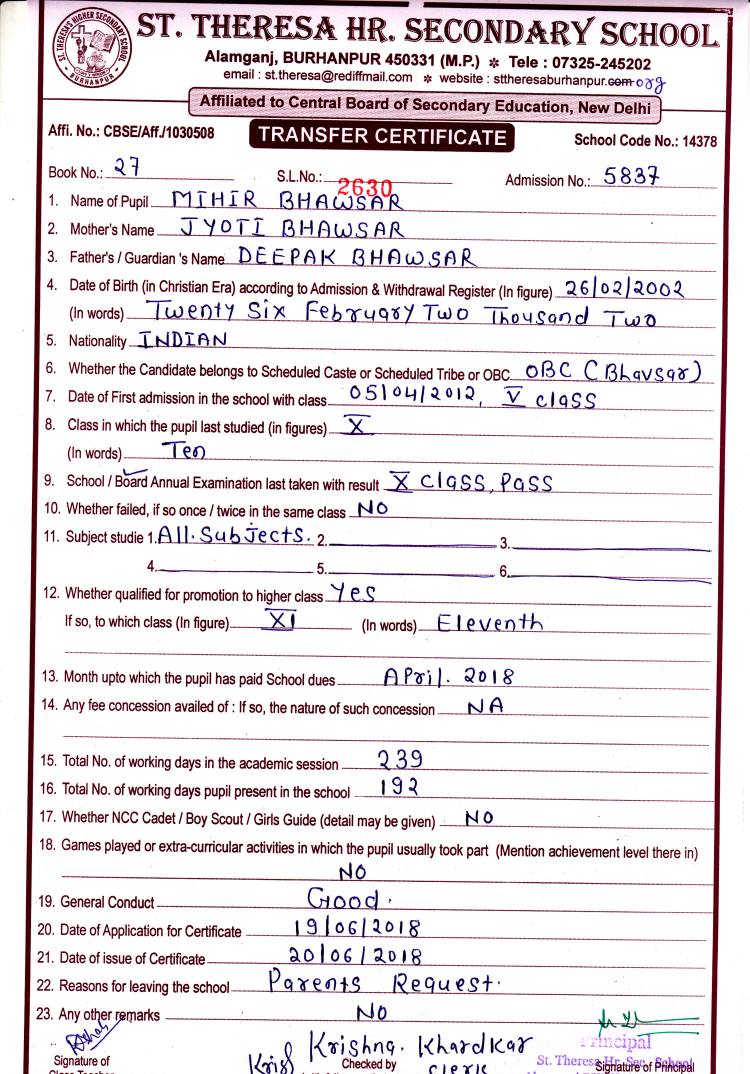 ST. THERESA HR. SECONDARY SCHOOL
Alamganj, BURHANPUR 450331 (M.P.) * Tele : 07325-245202
email : st.theresa@rediffmail.com * website : sttheresaburhanpur.com org
Affiliated to Central Board of Secondary Education, New Delhi
Affi. No.: CBSE/Aff./1030508 TRANSFER CERTIFICATE School Code No.: 14378
Book No.: 27 S.L.No.: 2630 Admission No.: 5837
1. Name of Pupil MIHIR BHAWSAR
2. Mother's Name JYOTI BHAWSAR
3. Father's / Guardian 's Name DEEPAK BHAWSAR
4. Date of Birth (in Christian Era) according to Admission & Withdrawal Register (In figure) 26/02/2002
(In words) Twenty Six February Two Thousand Two
5. Nationality INDIAN
6. Whether the Candidate belongs to Scheduled Caste or Scheduled Tribe or OBC OBC (Bhavsar)
7. Date of First admission in the school with class 05/04/2012, V class
8. Class in which the pupil last studied (in figures) X
(In words) Ten
9. School / Board Annual Examination last taken with result X class, Pass
10. Whether failed, if so once / twice in the same class NO
11. Subject studie 1. All. Subjects. 2. 3.
4. 5. 6.
12. Whether qualified for promotion to higher class Yes
If so, to which class (In figure) XI (In words) Eleventh
13. Month upto which the pupil has paid School dues April. 2018
14. Any fee concession availed of : If so, the nature of such concession NA
15. Total No. of working days in the academic session 239
16. Total No. of working days pupil present in the school 192
17. Whether NCC Cadet / Boy Scout / Girls Guide (detail may be given) NO
18. Games played or extra-curricular activities in which the pupil usually took part (Mention achievement level there in)
NO
19. General Conduct Good.
20. Date of Application for Certificate 19/06/2018
21. Date of issue of Certificate 20/06/2018
22. Reasons for leaving the school Parents Request.
23. Any other remarks NO
Krishna. Khardkar Principal
Signature of Checked by St. Theresa Hr. Sec. School Signature of Principal
Clerk